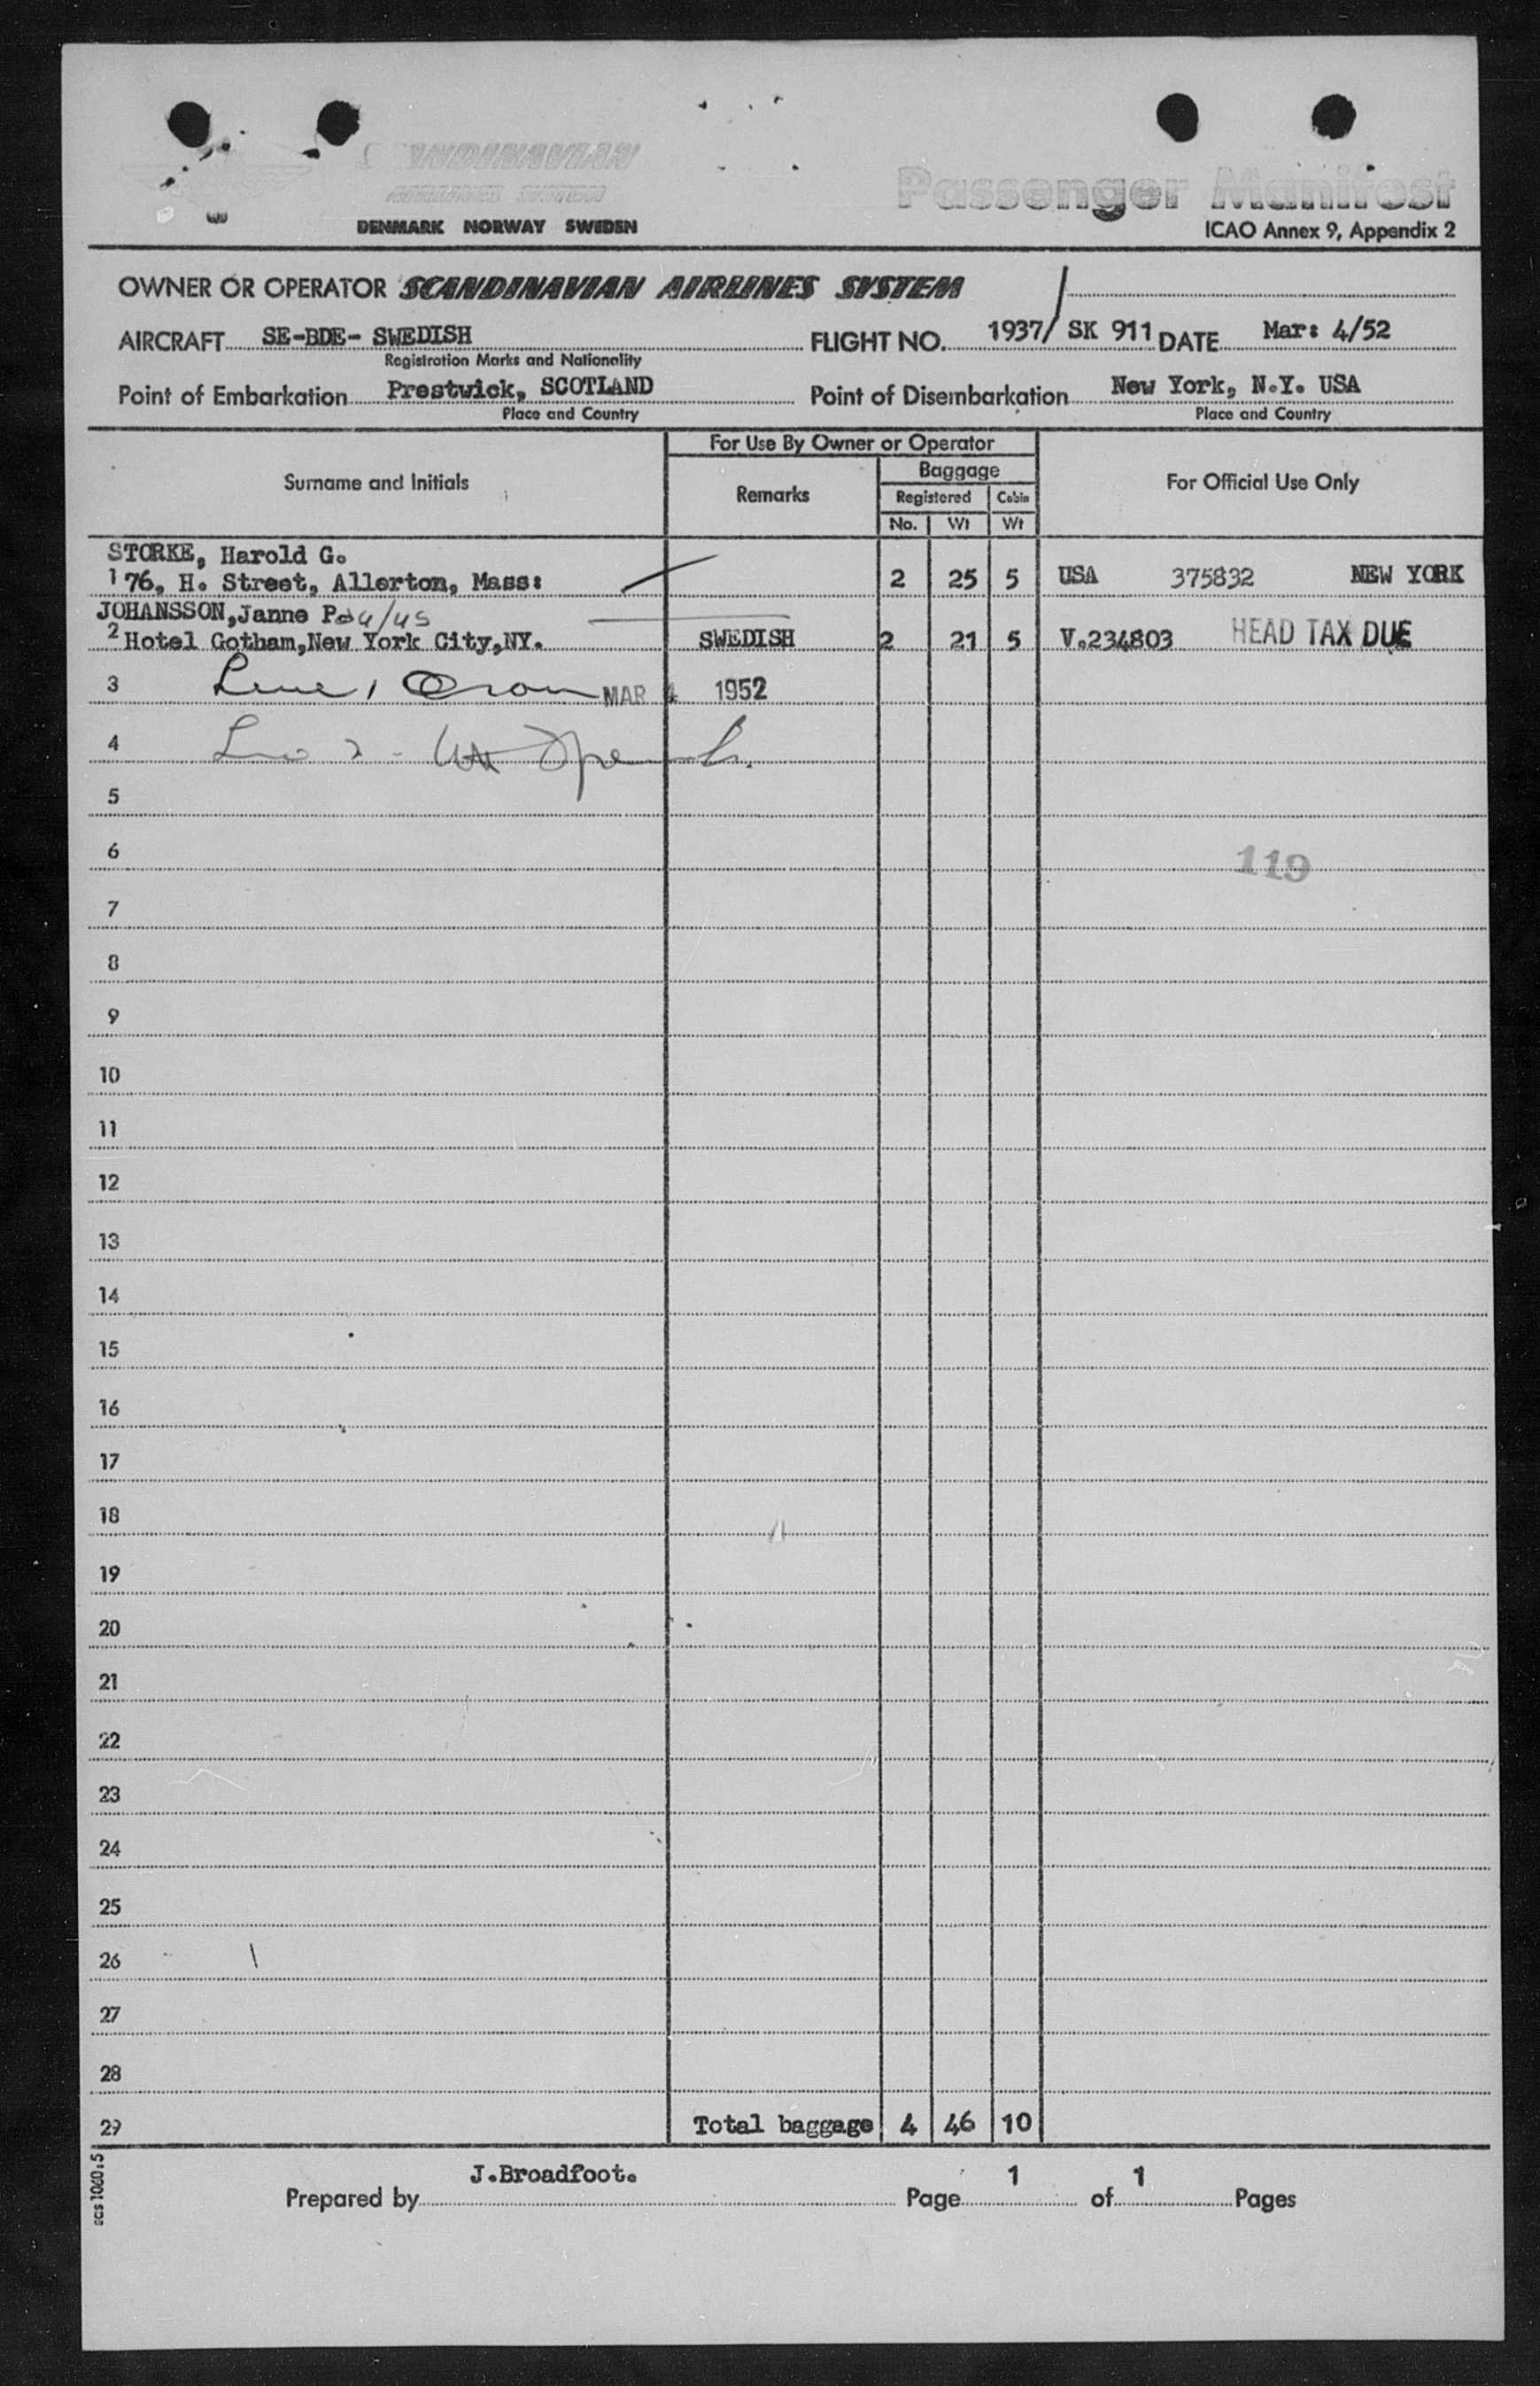 SCANDINAVIAN
AIRLINES SYSTEM
DENMARK NORWAY SWEDEN
Passenger Manifest
ICAO Annex 9, Appendix 2
OWNER OR OPERATOR SCANDINAVIAN AIRLINES SYSTEM
AIRCRAFT SE-BDE- SWEDISH FLIGHT NO. 1937/ SK 911 DATE Mar: 4/52
Registration Marks and Nationality
Point of Embarkation Prestwick, SCOTLAND Point of Disembarkation New York, N.Y. USA
Place and Country Place and Country
For Use By Owner or Operator
Surname and Initials Remarks Baggage For Official Use Only
Registered Cabin
No. Wt Wt
STORKE, Harold G.
1 76, H. Street, Allerton, Mass: 2 25 5 USA 375832 NEW YORK
JOHANSSON,Janne P.
2 Hotel Gotham,New York City,NY. SWEDISH 2 21 5 V.234803 HEAD TAX DUE
3 MAR 4 1952
4
5
6 119
7
8
9
10
11
12
13
14
15
16
17
18
19
20
21
22
23
24
25
26
27
28
29 Total baggage 4 46 10
sas 1060:5
Prepared by J.Broadfoot. Page 1 of 1 Pages